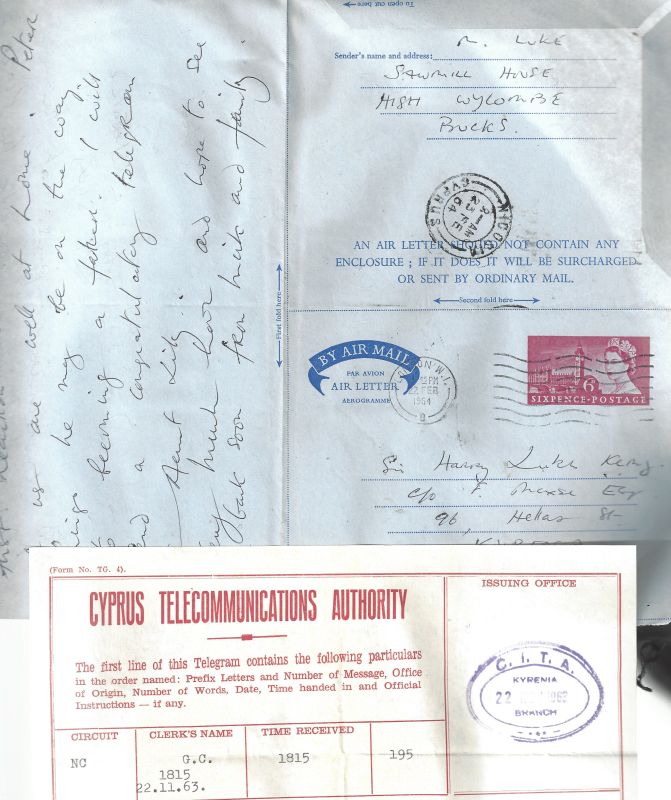 To open cut here
Sender's name and address: R. LUKE
SAWMILL HOUSE
HIGH WYCOMBE
BUCKS.
NICOSIA
CYPRUS
AN AIR LETTER SHOULD NOT CONTAIN ANY
ENCLOSURE ; IF IT DOES IT WILL BE SURCHARGED
OR SENT BY ORDINARY MAIL.
First fold here
Second fold here
BY AIR MAIL
PAR AVION
AIR LETTER
AEROGRAMME
LONDON W.1.
22 FEB
1964
6D
SIXPENCE·POSTAGE
Sir Harry Luke
c/o F.
96, Hellas St.
KYRENIA
us are well at home. Peter
he may be on the way
becoming a father. I will
send a congratulatory telegram
Aunt Lily.
much love and hope to see
back soon from with and family.
(Form No. TG. 4).
CYPRUS TELECOMMUNICATIONS AUTHORITY
The first line of this Telegram contains the following particulars
in the order named: Prefix Letters and Number of Message, Office
of Origin, Number of Words, Date, Time handed in and Official
Instructions — if any.
CIRCUIT CLERK'S NAME TIME RECEIVED
NC G.C. 1815 195
1815
22.11.63.
ISSUING OFFICE
C. I. T. A.
KYRENIA
22 1963
BRANCH